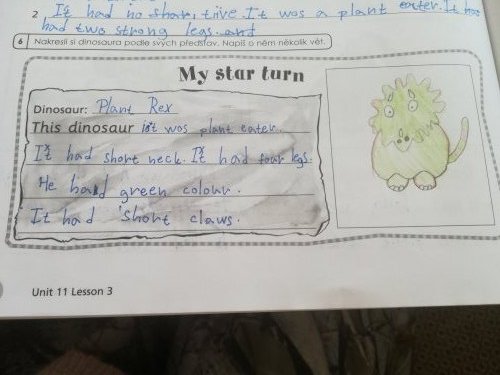 2 It had no shar, tiive. It was a plant eater. It has
had two strong legs. and
6 Nakresli si dinosaura podle svých představ. Napiš o něm několik vět.
My star turn
Dinosaur: Plant Rex
This dinosaur was plant eater.
It had short neck. It had four legs.
He had green colour.
It had short claws.
Unit 11 Lesson 3